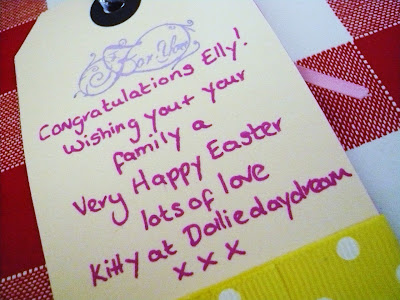 For You
Congratulations Elly!
Wishing you + your
family a
Very Happy Easter
lots of love
Kitty at Dolliedaydream
x x x